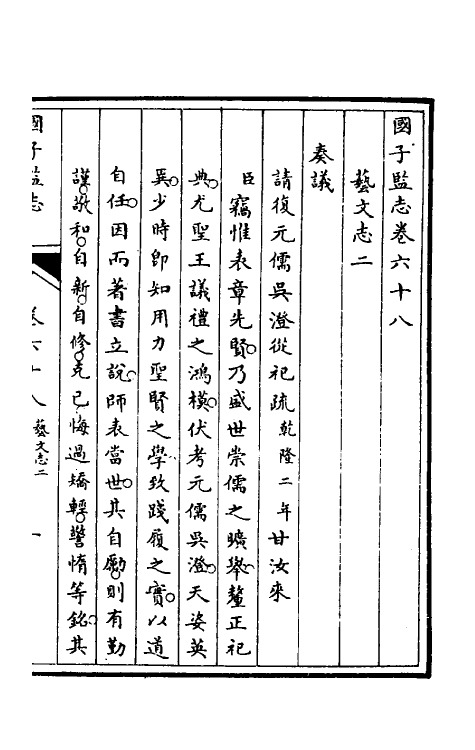 國子監志卷六十八
藝文志二
奏議
請復元儒吳澄從祀疏乾隆二年甘汝來
臣竊惟表章先賢乃盛世崇儒之曠舉釐正祀
典尤聖王議禮之鴻模伏考元儒吳澄天姿英
異少時卽知用力聖賢之學致踐履之實以道
自任因而著書立說師表當世其自勵則有勤
謹敬和自新自修克己悔過矯輕警惰等銘其
國子監志 卷六十八 藝文志二 一